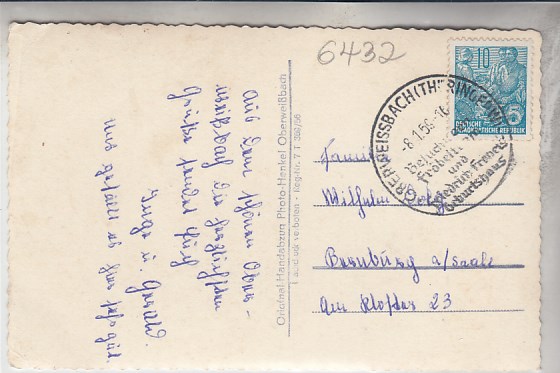 6432
Aus dem schönen Ober-
weißbach die herzlichsten
Grüße sendet Euch
Inge u. Gerald.
uns gefällt es hier sehr gut.
Original Handabzug Photo-Henkel Oberweißbach
Nachdruck verboten - Reg.-Nr. T 393/56
OBERWEISSBACH (THÜRINGER WALD)
Besucht
und
Friedrich Fröbels
Geburtshaus
10
DEUTSCHE
DEMOKRATISCHE REPUBLIK
Familie
Wilhelm
Bernburg a/Saale
Am Kloster 23